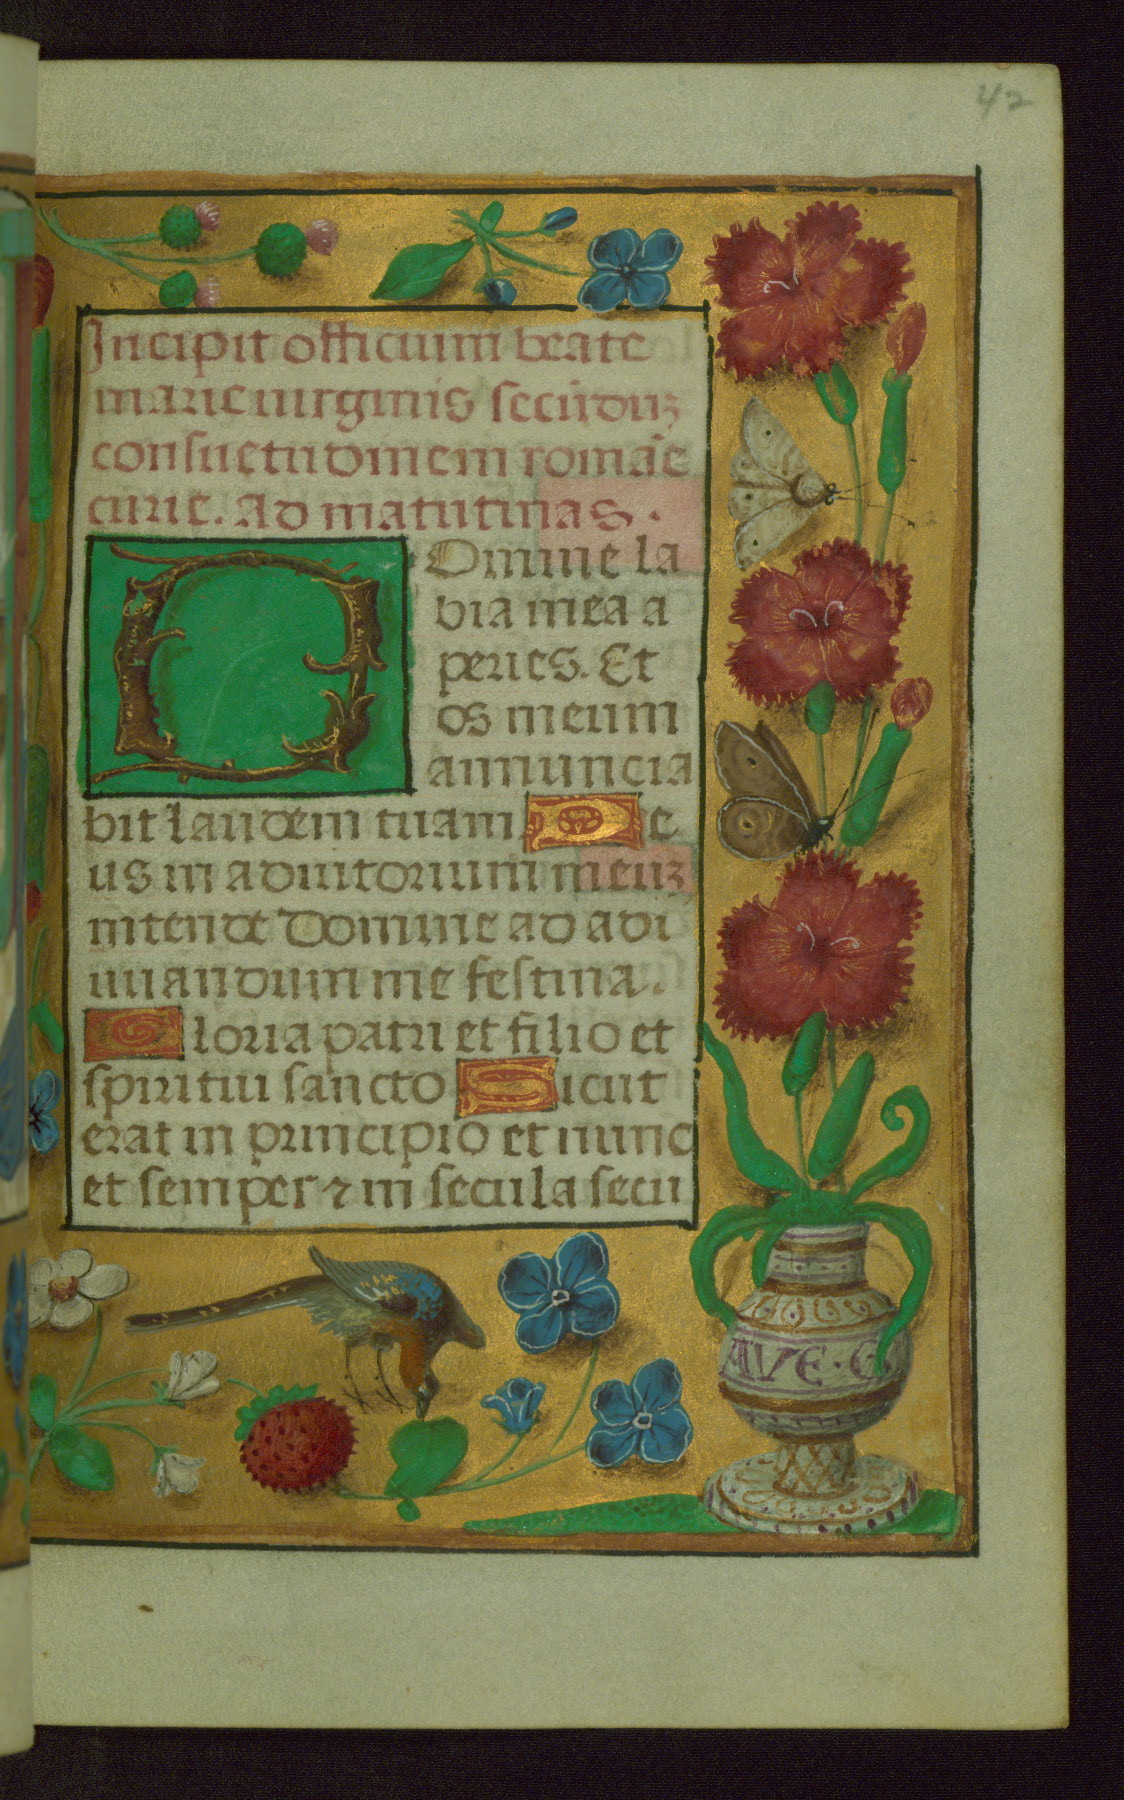 42
Incipit officium beate
marie uirginis secūduꝫ
consuetudinem romāe
curie. Ad matutinas.
Domine la
bia mea a
peries. Et
os meum
annuncia
bit laudem tuam. De
us in adiutorium meuꝫ
intende Domine ad adi
uuandum me festina.
Gloria patri et filio et
spiritui sancto Sicut
erat in principio et nunc
et semper ⁊ in secula secu
AVE · G